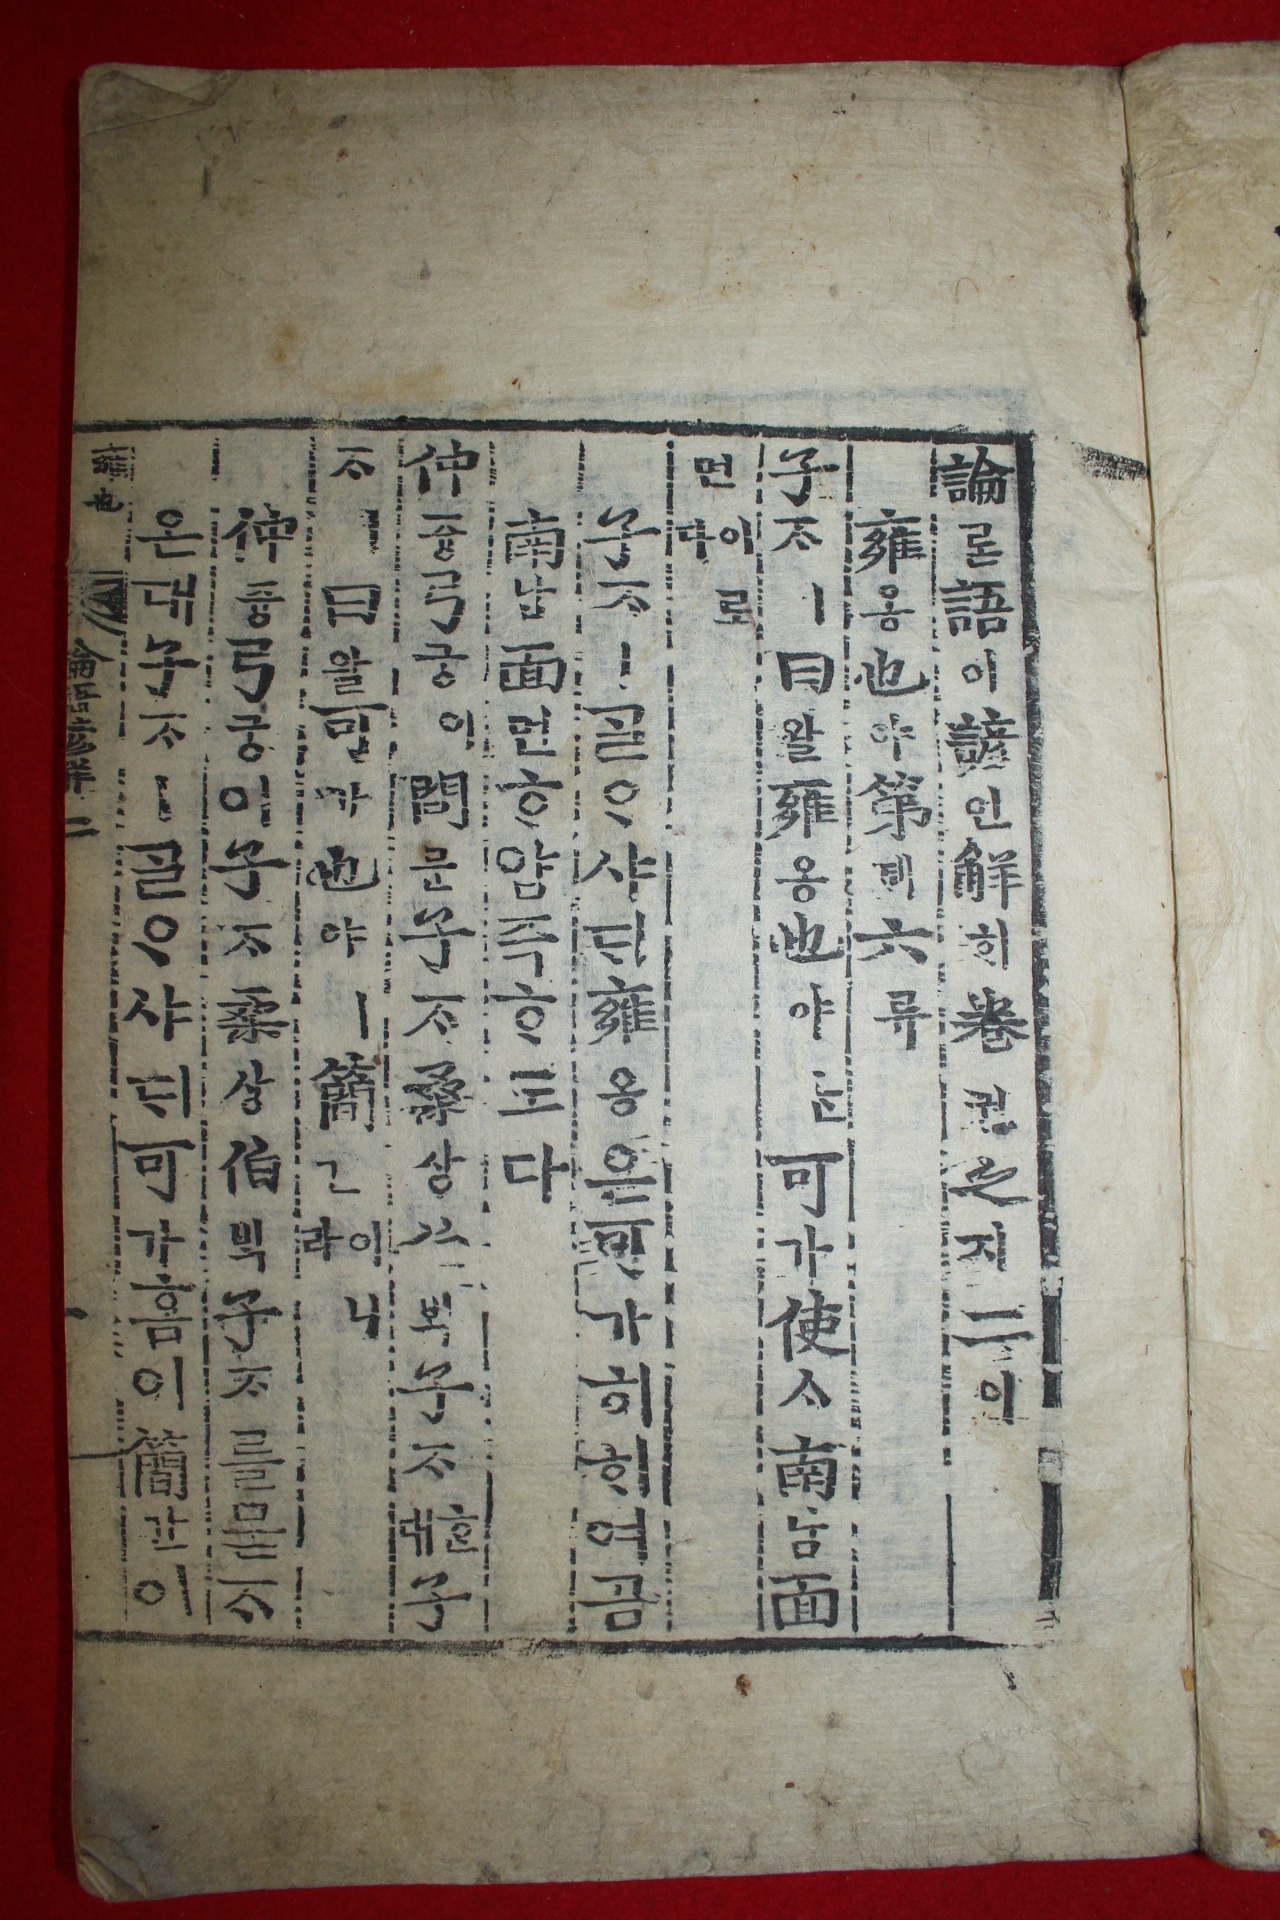 論론語어諺언解ᄒᆡ卷권之지二이
雍옹也야第뎨六륙
子ᄌᆞㅣ曰왈雍옹也야ᄂᆞᆫ可가使ᄉᆞ南남面
면이로다
子ᄌᆞㅣᄀᆞᆯᄋᆞ샤ᄃᆡ雍옹은可가히ᄒᆞ여곰
南남面면ᄒᆞ얌즉ᄒᆞ도다
仲즁弓궁이問문子ᄌᆞ桑상伯ᄇᆡᆨ子ᄌᆞᄒᆞᆫ대子
ᄌᆞㅣ曰왈可가也야ㅣ簡간이니라
仲즁弓궁이子ᄌᆞ桑상伯ᄇᆡᆨ子ᄌᆞ를묻ᄌᆞ
온대子ᄌᆞㅣᄀᆞᆯᄋᆞ샤ᄃᆡ可가홈이簡간이
雍也
論語諺解二